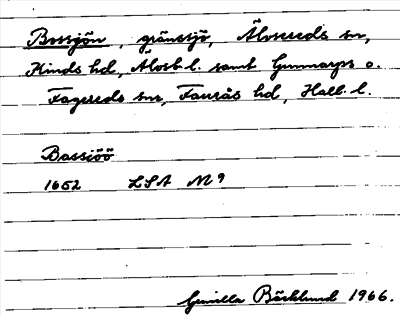 Bossjön, gränssjö, Älvsereds sn,
Kinds hd, Älvsb. l. samt Gunnarps o.
Fagereds sn, Faurås hd, Hall. l.
Bassiöö
1652 LSA M 9
Gunilla Bäcklund 1966.